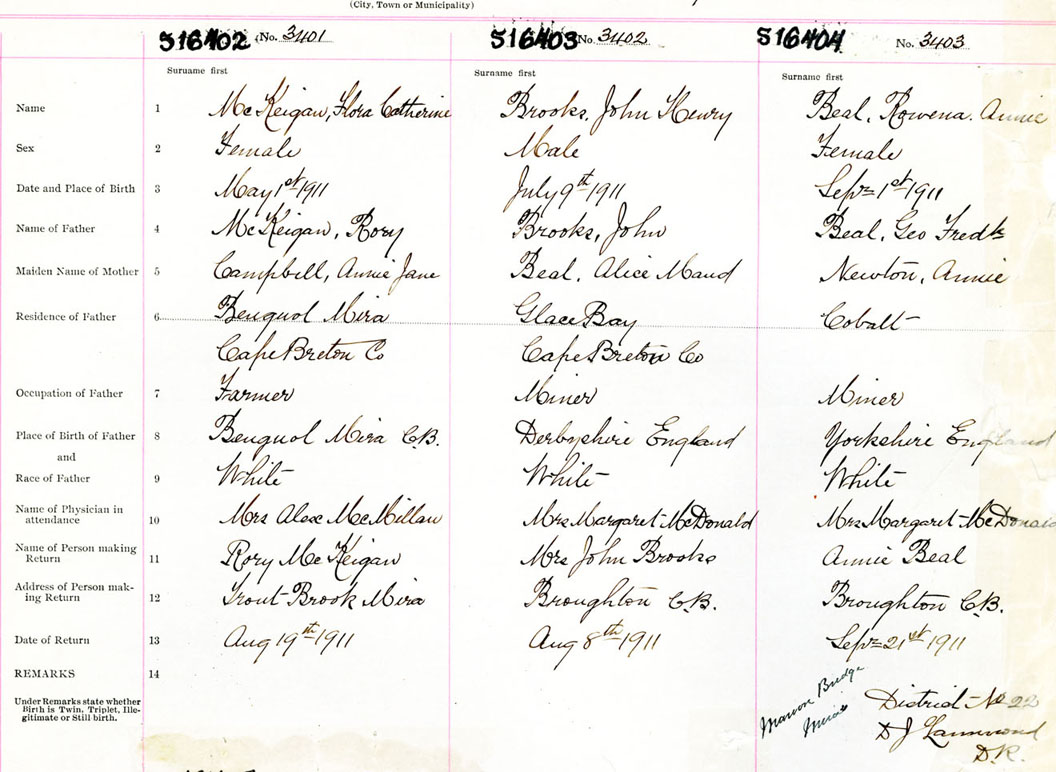 (City, Town or Municipality)
516402 No. 3401 516403 No. 3402 516404 No. 3403
Suruame first Surname first Surname first
Name 1 McKeigan, Flora Catherine Brooks, John Henry Beal, Rowena. Annie
Sex 2 Female Male Female
Date and Place of Birth 3 May 1st 1911 July 9th 1911 Sep= 1st 1911
Name of Father 4 McKeigan, Rory Brooks, John Beal, Geo Fredk
Maiden Name of Mother 5 Campbell, Annie Jane Beal, Alice Maud Newton, Annie
Residence of Father 6 Mira Glace Bay Cobalt
Cape Breton Co Cape Breton Co
Occupation of Father 7 Farmer Miner Miner
Place of Birth of Father 8 Mira C.B. Derbyshire England Yorkshire England
and
Race of Father 9 White White White
Name of Physician in
attendance 10 Mrs Alex McMillan Mrs Margaret McDonald Mrs Margaret McDonald
Name of Person making
Return 11 Rory McKeigan Mrs John Brooks Annie Beal
Address of Person mak-
ing Return 12 Trout Brook Mira Broughton C.B. Broughton C.B.
Date of Return 13 Aug 19th 1911 Aug 8th 1911 Sep= 21st 1911
REMARKS 14
Under Remarks state whether
Birth is Twin, Triplet, Ille-
gitimate or Still birth.
Marion Bridge
District No 22
D J
D.R.